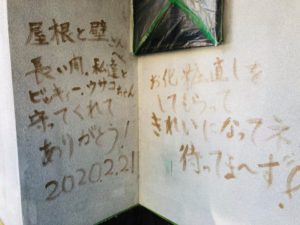 屋根と壁さんへ
長い間、私達と
ピッキィー、ウサコちゃん
守ってくれて
ありがとう!
2020.2.21
お化粧直しを
してもらって
きれいになってネ
待ってま〜す!